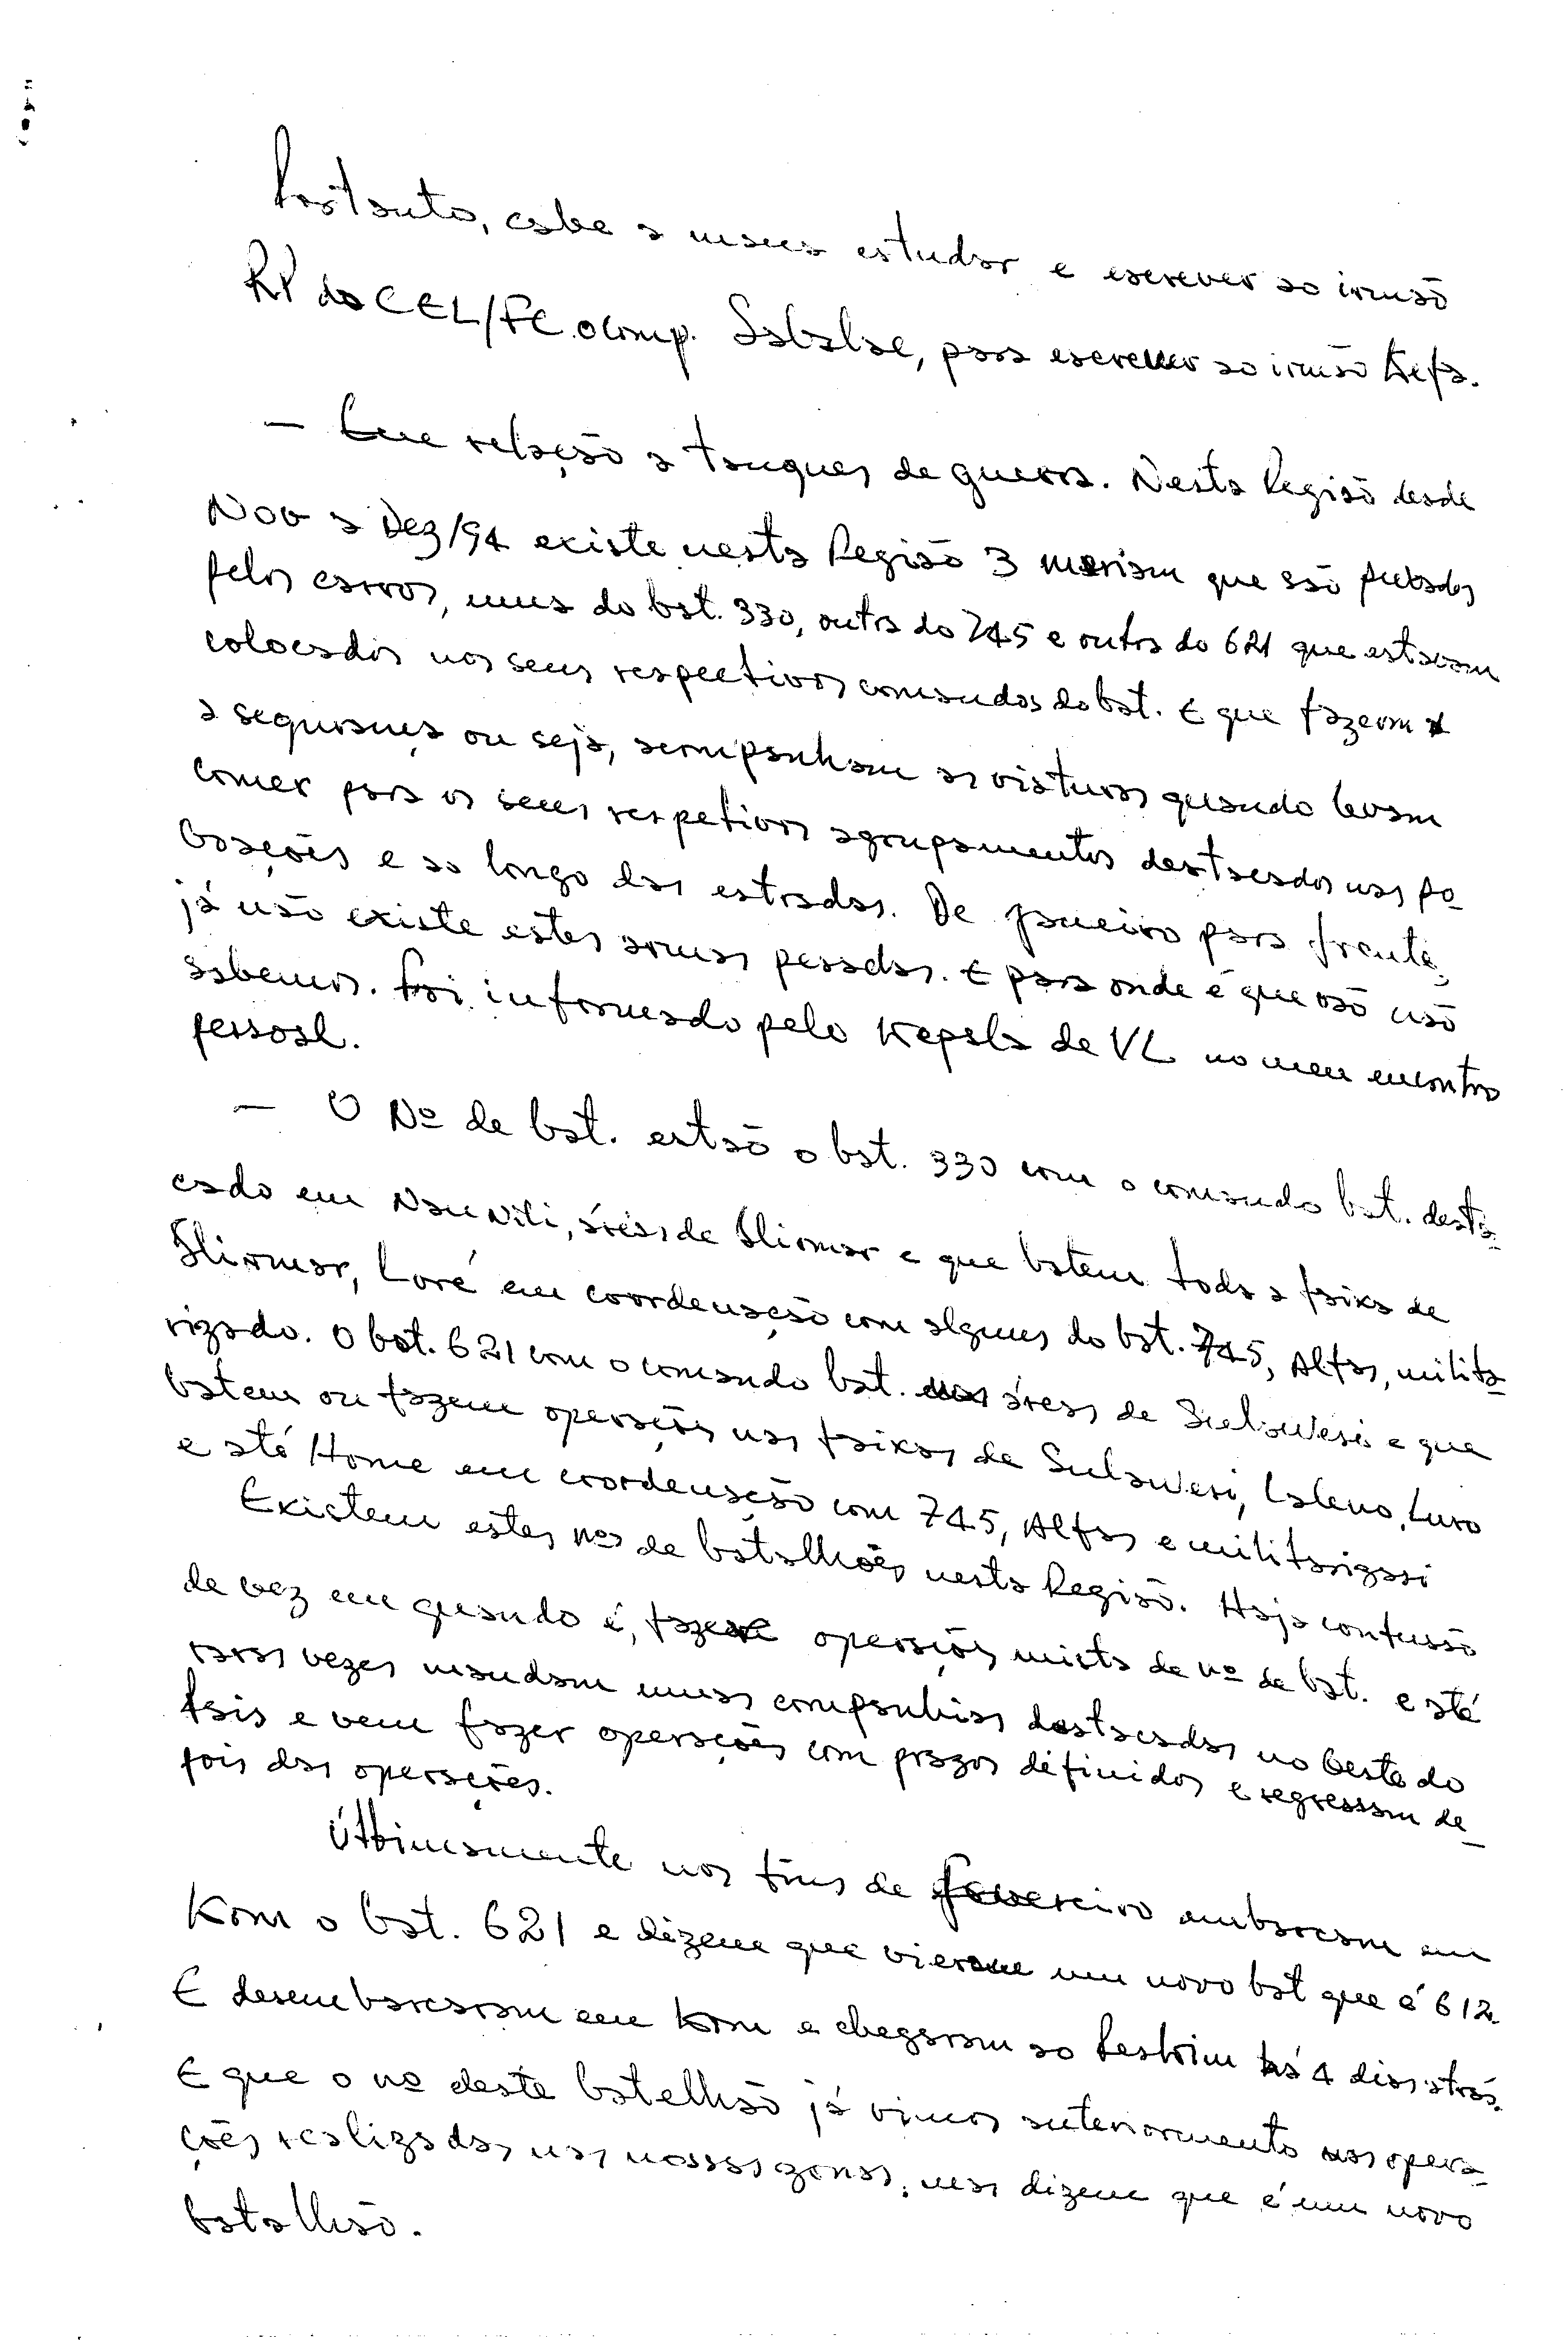 Portanto, cabe a mana estudar e escrever ao irmão
RP do CEL/FC. o comp. Sabalae, para escrever ao irmão Kefa.
— Em relação a tanques de guerra. Nesta Região desde
Nov a Dez/94 existe nesta Região 3 meriam que são puxados
pelos carros, uma do bat. 330, outra do 745 e outra do 621 que estavam
colocados nos seus respectivos comandos do bat. E que fazem
a segurança ou seja, acompanham as viaturas quando levam
comer para os seus respetivos agrupamentos destacados nas po-
voações e ao longo das estradas. De Janeiro para frente,
já não existe estes armas pesadas. E para onde é que vão não
sabemos. Foi informado pelo Kepala de VL no meu encontro
pessoal.
— O Nº de bat. estão o bat. 330 com o comando bat. desta-
cado em Nau Nili, áreas de Iliomar e que batem toda a faixa de
Iliomar, Loré em coordenação com alguns do bat. 745, Alfas, milita-
rizado. O bat. 621 com o comando bat. nas áreas de Sulawesi e que
batem ou fazem operações nas faixas de Sulawesi, Laleno, Luro
e até Home em coordenação com 745, Alfas e militarizasi
Existem estes nos de batalhões nesta Região. Haja confusão
de vez em quando é, fazem operações mista de nº de bat. e até
raras vezes mandam umas companhias destacadas no Oeste do
País e vem fazer operações com prazos definidos e regressam de-
pois das operações.
Últimamente nos fins de fevereiro embarcam em
Kom o bat. 621 e dizem que vieram um novo bat que é 612.
E desembarcaram em Kom e chegaram ao Lestrim há 4 dias atrás.
E que o nº deste batalhão já vimos anteriormente nas opera-
ções realizadas nas nossas zonas, mas dizem que é um novo
batalhão.